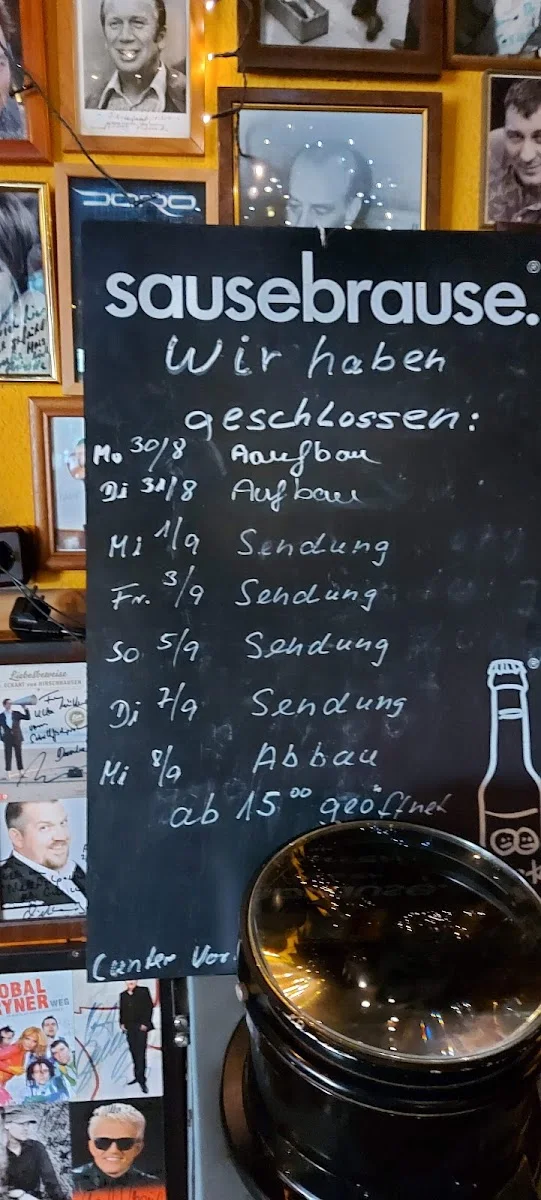 DORO
sausebrause.®
Wir haben
geschlossen:
Mo 30/8 Aaufbau
Di 31/8 Aufbau
Mi 1/9 Sendung
Fr. 3/9 Sendung
So 5/9 Sendung
Di 7/9 Sendung
Mi 8/9 Abbau
ab 15⁰⁰ geöffnet
(unter Vor
Liebesbeweise
ECKART von HIRSCHHAUSEN
OBAL
YNER WEG